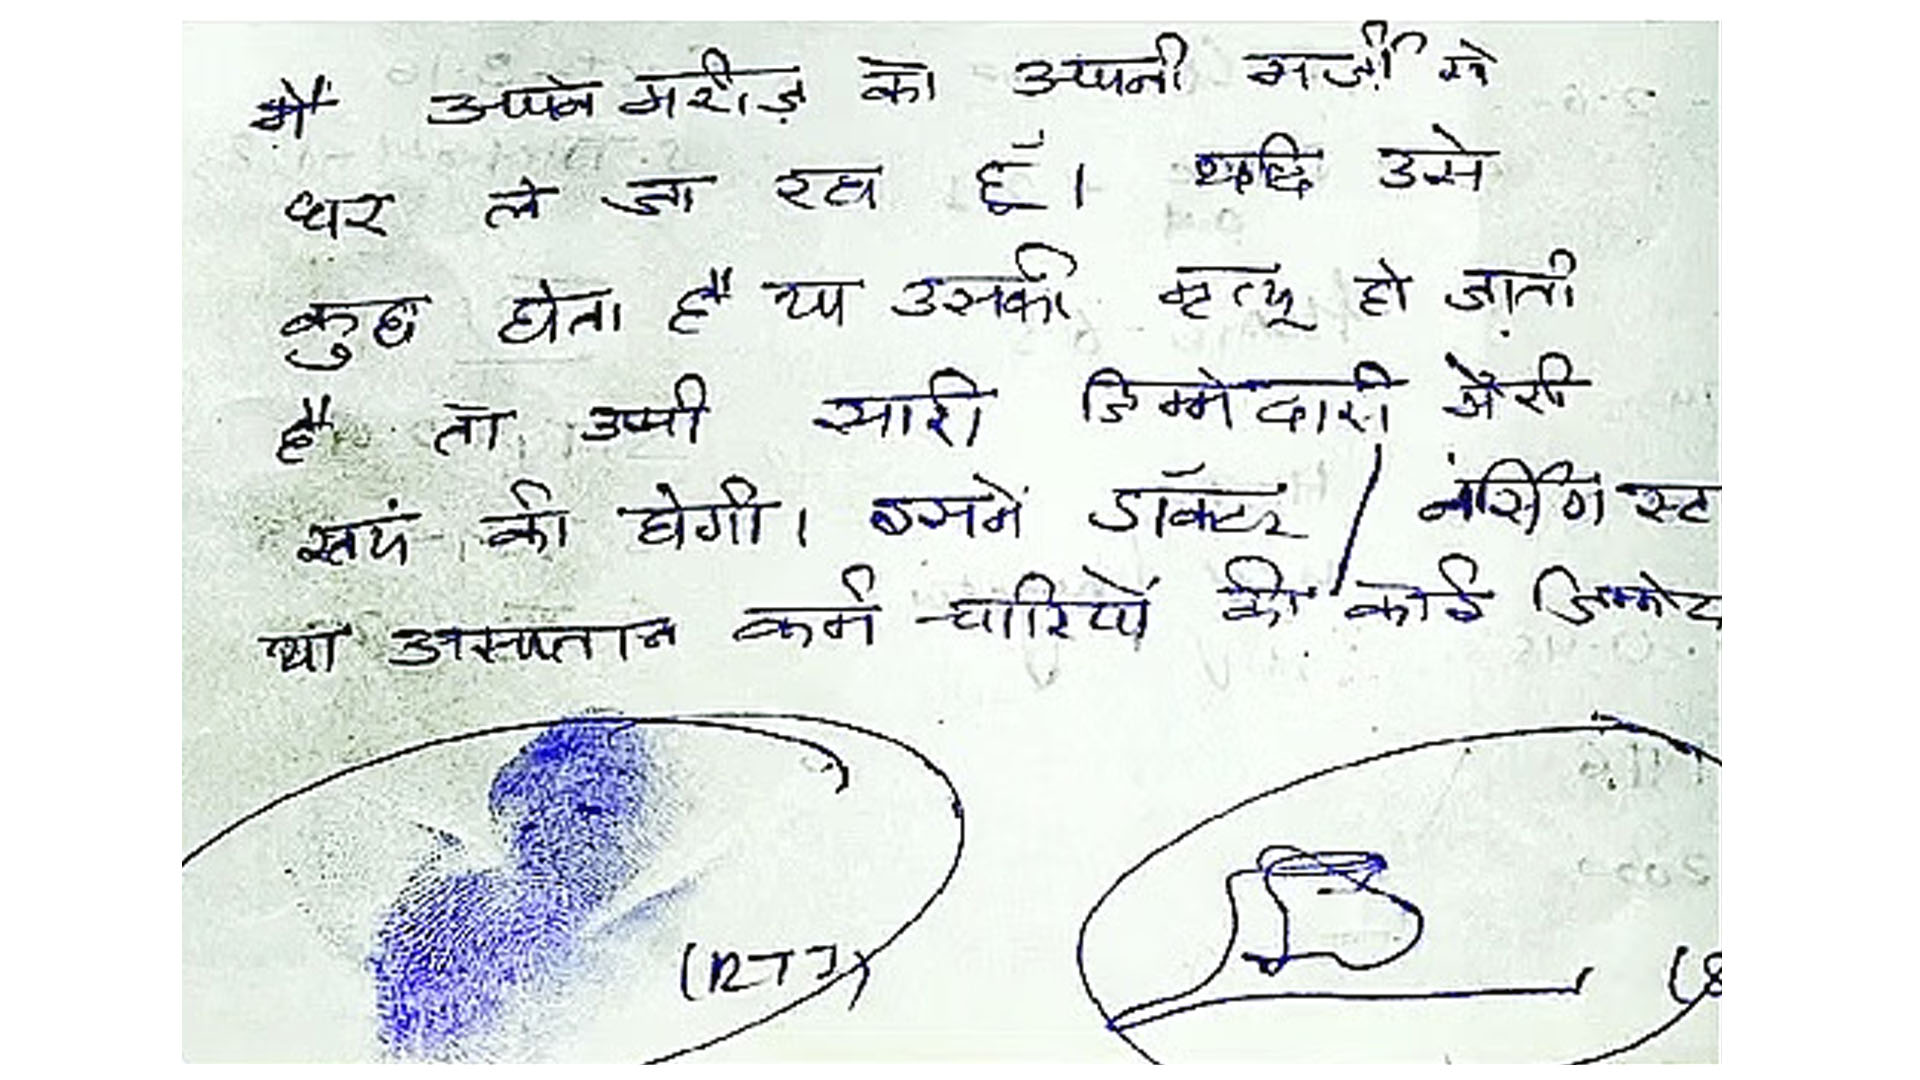 मैं अपने मरीज़ को अपनी मर्ज़ी से
घर ले जा रहा हूँ। यदि उसे
कुछ होता है या उसकी मृत्यु हो जाती
है तो उसकी सारी जिम्मेदारी मेरी
स्वयं की होगी। इसमें डॉक्टर / नर्सिंग स्ट
या अस्पताल कर्मचारियों की कोई जिम्मेद
(RTI)